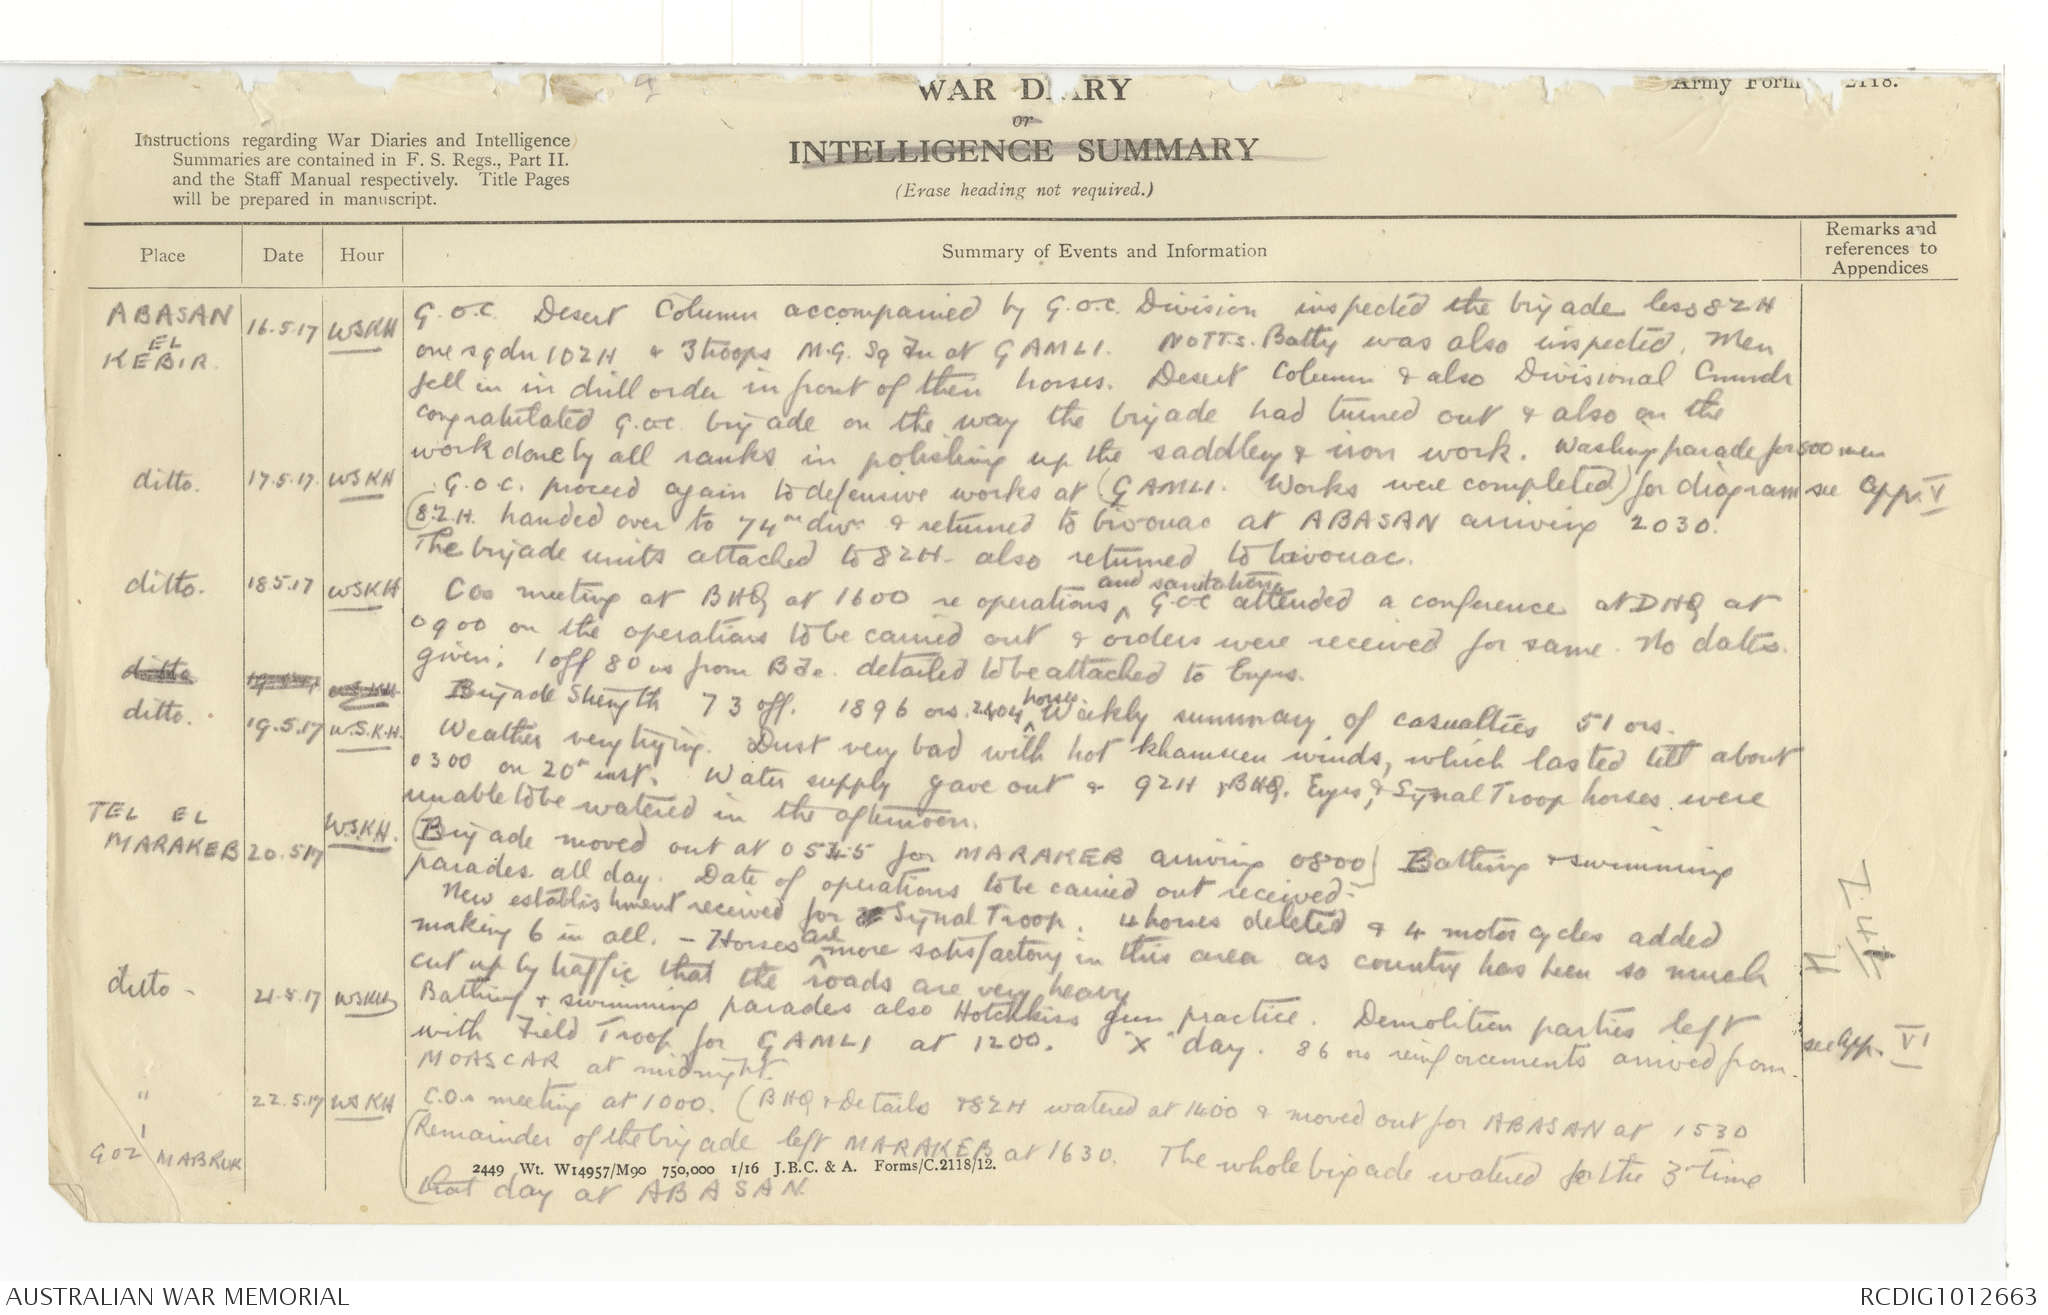 WAR DIARY
or
INTELLIGENCE SUMMARY
(Erase heading not required.)
Army Form 2118.
Instructions regarding War Diaries and Intelligence
Summaries are contained in F. S. Regs., Part II.
and the Staff Manual respectively. Title Pages
will be prepared in manuscript.
Place Date Hour Summary of Events and Information Remarks and references to Appendices
ABASAN EL KEBIR. 16.5.17 WSKH G.O.C. Desert Column accompanied by G.O.C. Division inspected the brigade less 8ZH
one sqdn 10ZH & 3 troops M.G. Sqdn at GAMLI. NOTTS. Batty was also inspected. Men
fell in in drill order in front of their horses. Desert Column & also Divisional Cmmdr
congratulated G.O.C. brigade on the way the brigade had turned out & also on the
work done by all ranks in polishing up the saddlery & iron work. Washing parade for 500 men
ditto. 17.5.17. WSKH G.O.C. proceed again to defensive works at (GAMLI. Works were completed) for diagram see App. V
(8.Z.H. handed over to 74th div. & returned to bivouac at ABASAN arriving 2030.
The brigade units attached to 8ZH also returned to bivouac.
ditto. 18.5.17 WSKH COs meeting at BHQ at 1600 re operations and sanitation. GOC attended a conference at DHQ at
0900 on the operations to be carried out & orders were received for same. No dates
given. 1 off 80 ors from Bde. detailed to be attached to Engrs.
ditto 19.5.17 WSKH Brigade Strength 73 off. 1896 ors. 2404 horses Weekly summary of casualties 51 ors.
ditto. 19.5.17 W.S.K.H. Weather very trying. Dust very bad with hot khamseen winds, which lasted till about
0300 on 20th inst. Water supply gave out & 9ZH & BHQ. Engrs, & Signal Troop horses were
unable to be watered in the afternoon.
TEL EL MARAKEB 20.5.17 WSKH. (Brigade moved out at 0545 for MARAKEB arriving 0800) Bathing & swimming
parades all day. Date of operations to be carried out received.
New establishment received for Signal Troop. 4 horses deleted & 4 motor cycles added
making 6 in all. - Horses are more satisfactory in this area as country has been so much
cut up by traffic that the roads are very heavy
ditto - 21.5.17 WSKH Bathing & swimming parades also Hotchkiss gun practice. Demolition parties left
with Field Troop for GAMLI at 1200. "X" day. 86 ors reinforcements arrived from see App. VI
MOASCAR at midnight.
" 22.5.17 WSKH C.Os meeting at 1000. (BHQ & Details & 8ZH watered at 1400 & moved out for ABASAN at 1530
GOZ MABRUK (Remainder of the brigade left MARAKEB at 1630. The whole brigade watered for the 3rd time
2449 Wt. W14957/M90 750,000 1/16 J.B.C. & A. Forms/C.2118/12.
that day at ABASAN.
AUSTRALIAN WAR MEMORIAL
RCDIG1012663